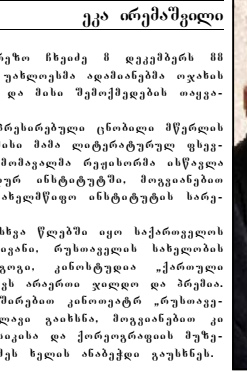 ეკა ირემაშვილი
რეზო ჩხეიძე 8 დეკემბერს 88
უახლოესმა ადამიანებმა ოჯახის
და მისი შემოქმედების თაყვა-
პრესირებული ცნობილი მწერლის
ისი მამა ლიტერატურულ ფსევ-
მომავალმა რეჟისორმა ისწავლა
ურ ინსტიტუტში, მოგვიანებით
ახელმწიფო ინსტიტუტის სარე-
სხვა წლებში იყო საქართველოს
ივანი, რუსთაველის სახელობის
გოგი, კინოსტუდია „ქართული
ვს არაერთი ჯილდო და პრემია.
შირებით კინოთეატრ „რუსთავე-
ლავი გაიხსნა, მოგვიანებით კი
იკისა და ქორეოგრაფიის მუზე-
მეს ხელის ანაბეჭდი გაუხსნეს.